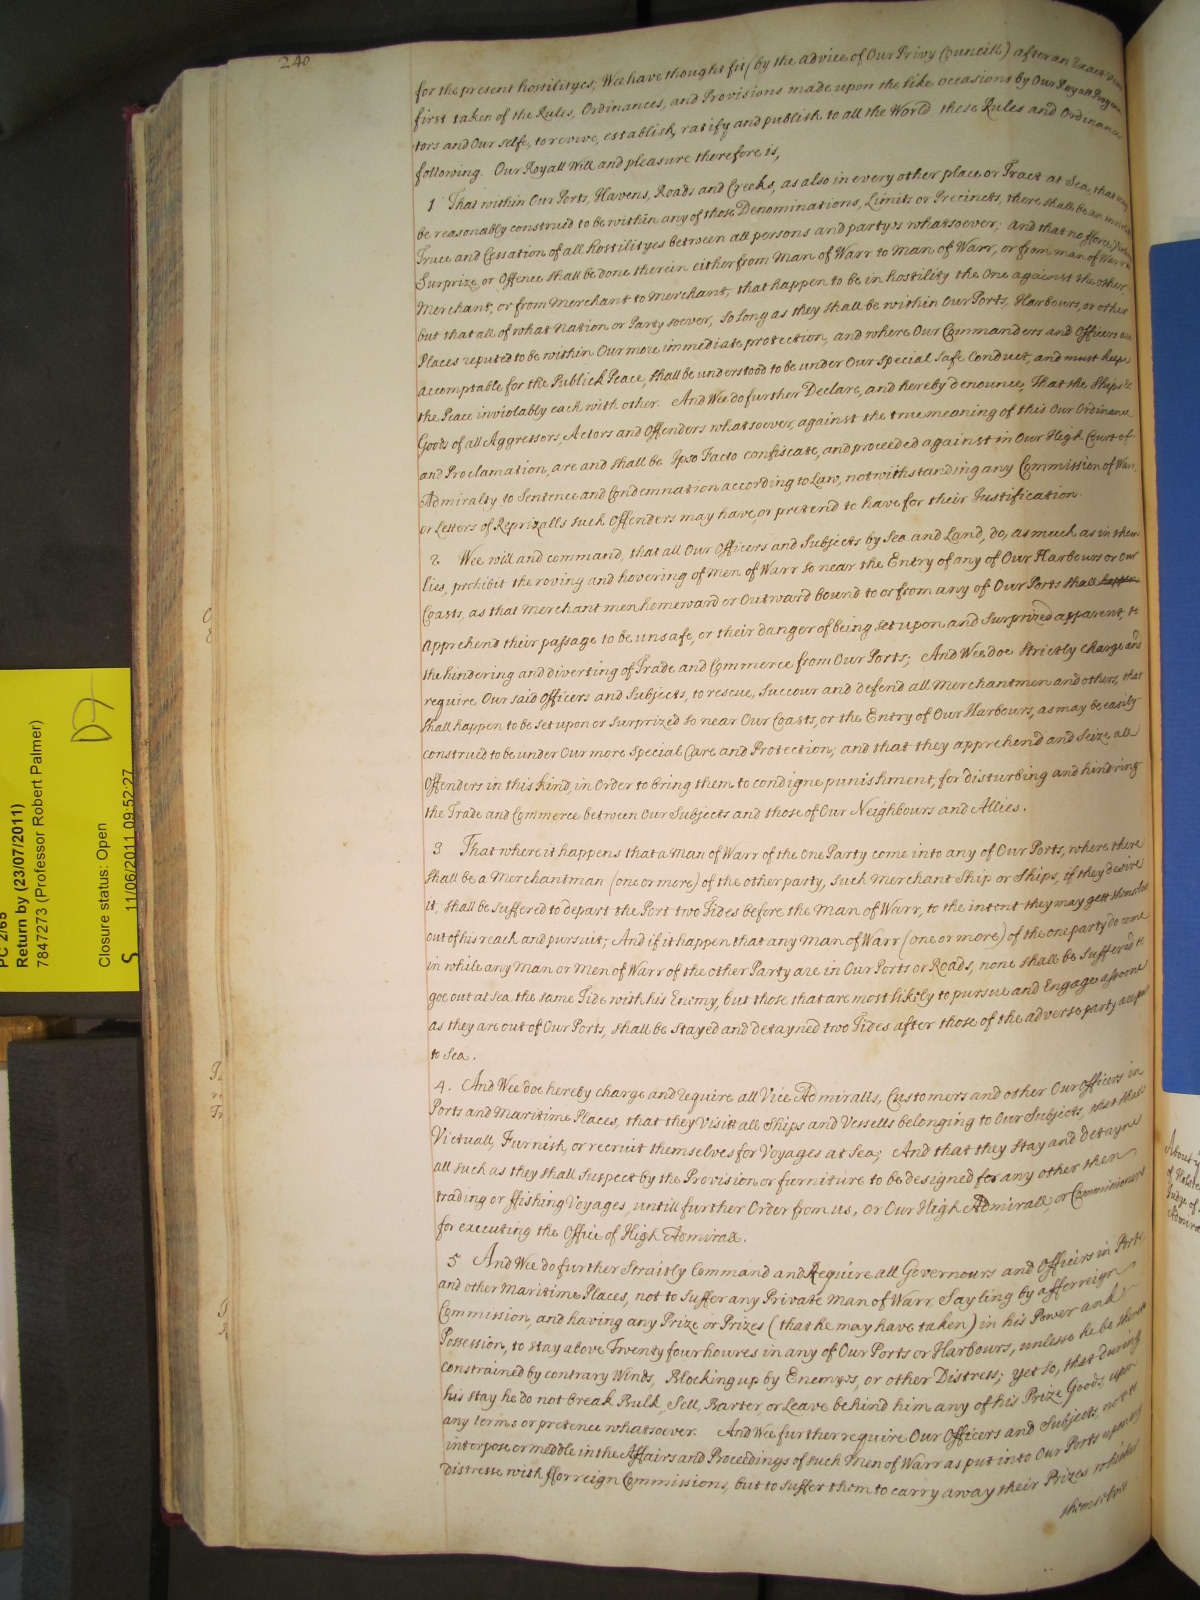 240
for the present hostilityes, Wee have thought fit (by the advice of Our Privy Councill) after an Exact View
first taken of the Rules, Ordinances, and Provisions made upon the like occasions by Our Royall Progeni
tors and Our selfe, to revive, establish, ratify and publish to all the World these Rules and Ordinances
following. Our Royall Will and pleasure therefore is,
1 That within Our Ports, Havens, Roads and Creeks, as also in every other place or Tract at Sea, that may
be reasonably construed to be within any of those Denominations, Limits or Precincts, there shall be an
Truce and Cessation of all hostilityes between all persons and partys whatsoever; and that no fforce,
Surprize or Offence shall be done therein either from Man of Warr to Man of Warr, or from man of Warr to
Merchant, or from Merchant to Merchant, that happen to be in hostility the One against the other,
but that all of what Nation or Party soever, so long as they shall be within Our Ports, Harbours, or other
Places reputed to be within Our more immediate protection, and where Our Commanders and Officers are
accomptable for the Publick Peace, shall be understood to be under Our special Safe Conduct, and must keep
the Peace inviolably each with other. And Wee do further Declare, and hereby denounce, That the Ships &
Goods of all Aggressors, Actors and Offenders whatsoever, against the true meaning of this Our Ordinance
and Proclamation, are and shall be Ipso Facto confiscate, and proceeded against in Our High Court of
Admiralty to Sentence and Condemnation according to Law, notwithstanding any Commission of Warr,
or Letters of Reprizalls such Offenders may have, or pretend to have for their Justification.
2 Wee will and command, that all Our Officers and Subjects by Sea and Land, do, as much as in them
lies, prohibit the roving and hovering of Men of Warr so near the Entry of any of Our Harbours or our
Coasts, as that Merchant men homeward or Outward bound to or from any of Our Ports shall happen
apprehend their passage to be unsafe, or their danger of being set upon and surprized apparent, to
the hindering and diverting of Trade and Commerce from Our Ports; And Wee doe strictly charge and
require Our said Officers and Subjects, to rescue, succour and defend all Merchantmen and others, that
shall happen to be set upon or surprized so near Our Coasts, or the Entry of Our Harbours, as may be easily
construed to be under Our more special Care and Protection; and that they apprehend and seize all
Offenders in this kind, in Order to bring them to condigne punishment, for disturbing and hindring
the Trade and Commerce between Our Subjects and those of Our Neighbours and Allies.
3 That where it happens that a Man of Warr of the One Party come into any of Our Ports, where there
shall be a Merchantman (one or more) of the other party, such Merchant Ship or Ships, if they desire
it, shall be suffered to depart the Port two Tides before the Man of Warr, to the intent they may gett themselves
out of his reach and pursuit; And if it happen that any Man of Warr (one or more) of the one party do come
in while any Man or Men of Warr of the other Party are in Our Ports or Roads, none shall be suffered to
goe out at sea the same Tide with his Enemy, but those that are most likely to pursue and Engage assoone
as they are out of Our Ports, shall be stayed and detayned two Tides after those of the adverse party
to Sea.
4. And Wee doe hereby charge and require all Vice Admiralls, Customers and other Our Officers in
Ports and Maritime Places, that they Visitt all Ships and Vessells belonging to Our Subjects, that shall
Victuall, Furnish, or recruit themselves for Voyages at Sea; And that they stay and detayne
all such as they shall suspect by the Provision or furniture to be designed for any other then
trading or ffishing Voyages, untill further Order from us, or Our High Admirall, or Commissioners
for executing the Office of High Admirall.
5 And Wee do further Straitly Command and Require all Governours and Officers in Ports
and other Maritime Places, not to suffer any Private Man of Warr, Sayling by a fforreign
Commission, and having any Prize or Prizes (that he may have taken) in his Power and
Possession, to stay above Twenty four houres in any of Our Ports or Harbours, unless he be there
constrained by contrary Winds, Blocking up by Enemys, or other Distress; Yet so, that during
his stay he do not break Bulk, Sell, Barter, or Leave behind him any of his Prize Goods, upon
any terms or pretence whatsoever. And Wee further require Our Officers and Subjects, not to
interpose or meddle in the Affairs and Proceedings of such Men of Warr as put into Our Ports upon any
Distresse with fforreign Commissions, but to suffer them to carry away their Prizes whither
themselves
PC 2/65
Return by (23/07/2011)
7847273 (Professor Robert Palmer)
Closure status: Open
S 11/06/2011 09:52:27
D7